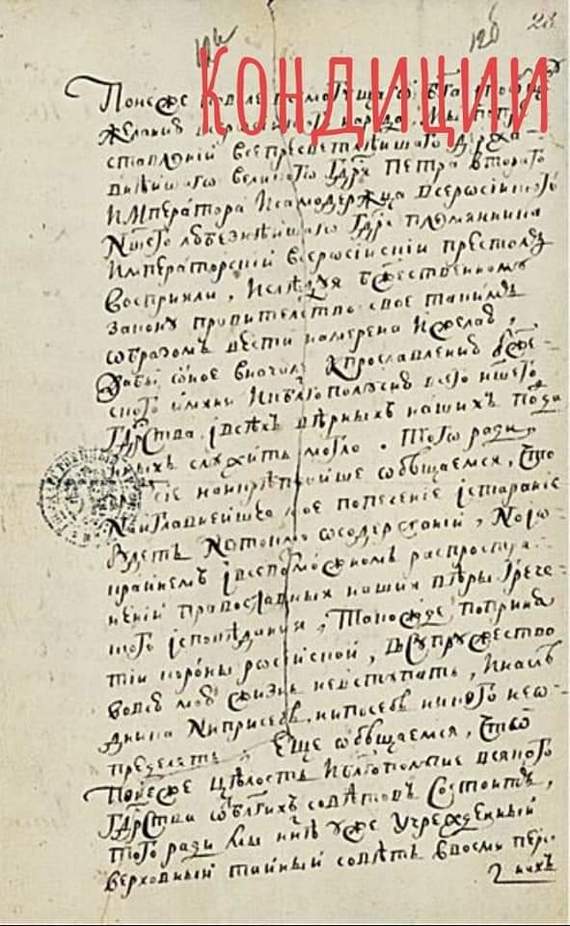 28
126
КОНДИЦИИ
Понеже по воле всемогущаго Бга
желанию народа, мы по пре
ставлении всепресветлѣйшаго држа-
внѣйшаго великого Гдря Петра втораго
Императора и самодержца всеросiйского
Нш̃его любезнѣйшаго Гдря племянника
Императорскiй всеросiйскiй престолъ
восприяли, и слѣдуя бжественному
закону правителство свое такимъ
образомъ вести намерена и желаю,
дабы оное вначале к прославлению бже-
ского имяни и к благополучию всего нш̃его
Гдрства, и всѣхъ вѣрныхъ нашихъ подда
нныхъ служить могло. Того ради,
сие наикрѣпчайше обѣщаемся, что
Наиглавнейшее мое попечение i старание
будетъ не токмо о содержанiй, но i о
крайнемъ i всевозможномъ распростра-
ненiй православныя нашия вѣры грече-
ского iсповѣдания, такожде по приня
тiи короны росиской, в супружество
во всю мою жизнь не вступать, и наслѣ
дника ни при себѣ, ни по себѣ никого нео-
пределять. Еще обѣщаемся, что
понеже цѣлость и благополучие всякого
Гдрства от блгихъ совѣтовъ состоитъ,
того ради мы ннѣ уже учрежденный
верховный тайный совѣтъ в восми персо
нахъ